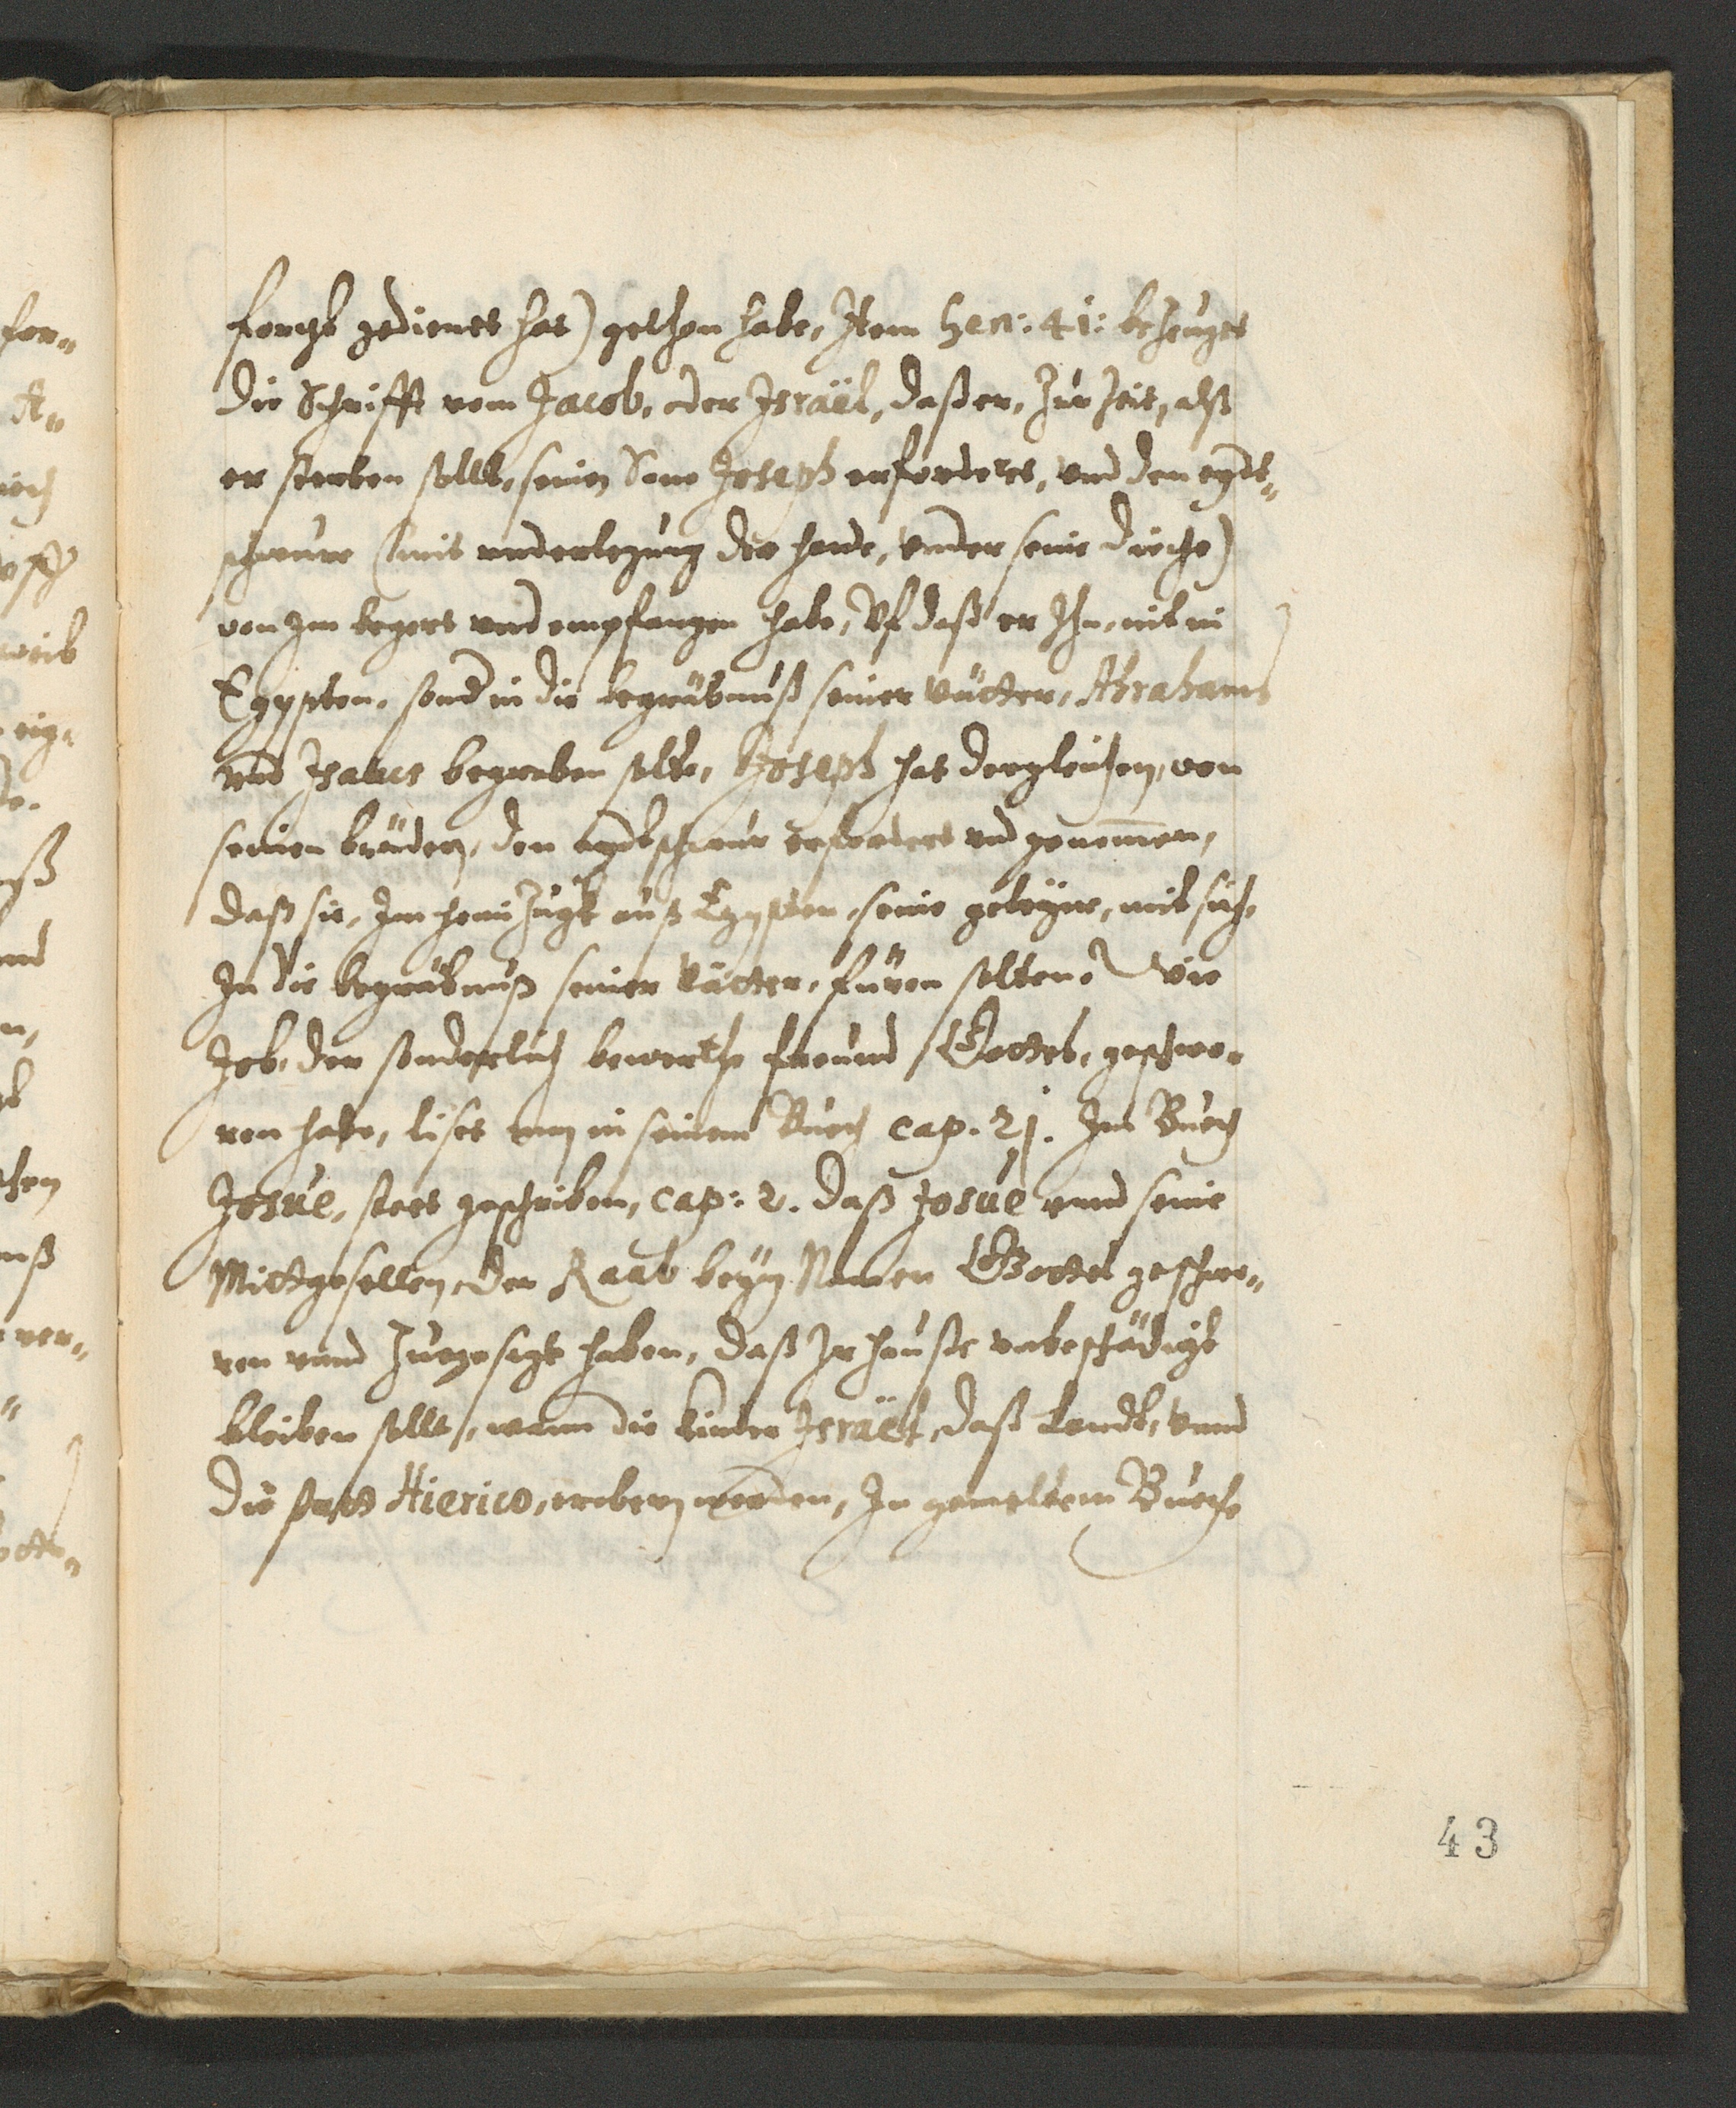 forcht gedienet hat) gethon habe, Item Gen: 41: bezeuget
die Schrifft vom Jacob, oder Israël, daß er, zur zeit, alß
er sterben sollt, seinen Sone Joseph erfordert, vnd den eydt„
schwure (mit vnderlegung der hande, vnder seine dieche)
von Im begert vnd empfangen habe, Vf daß er Ihn, nit in
Egypten, sond in die begräbnuß seiner vätter, Abrahams
vnd Isaacs begraben solte, Joseph hat dergleichen, von
seinen brüdern, den eydtschwur erfordert vnd genommen,
daß sie, Im heimzugk auß Egypten, seine gebeyne, mit sich,
In die begräbnuß seiner Vätter, füren solten. Wie
Job, der sonderlich bewerthe freund Gottes, geschwo„
ren habe, liset man in seinem Buech cap. 31. Im Buech
Josue, stett geschriben, cap: 2. daß Josue vnnd seine
Mittgesellen, der Raab beym Namen Gottes geschwo„
ren vnnd zuegesagt haben, daß Ir hauße vnbeschädigt
bleiben sollt, wann die kinder Israël, daß Landt, vnnd
die statt Hierico, erobern werden, In gemeltem Bueche
43
for„
A„
weib
eig„
nd
ver„